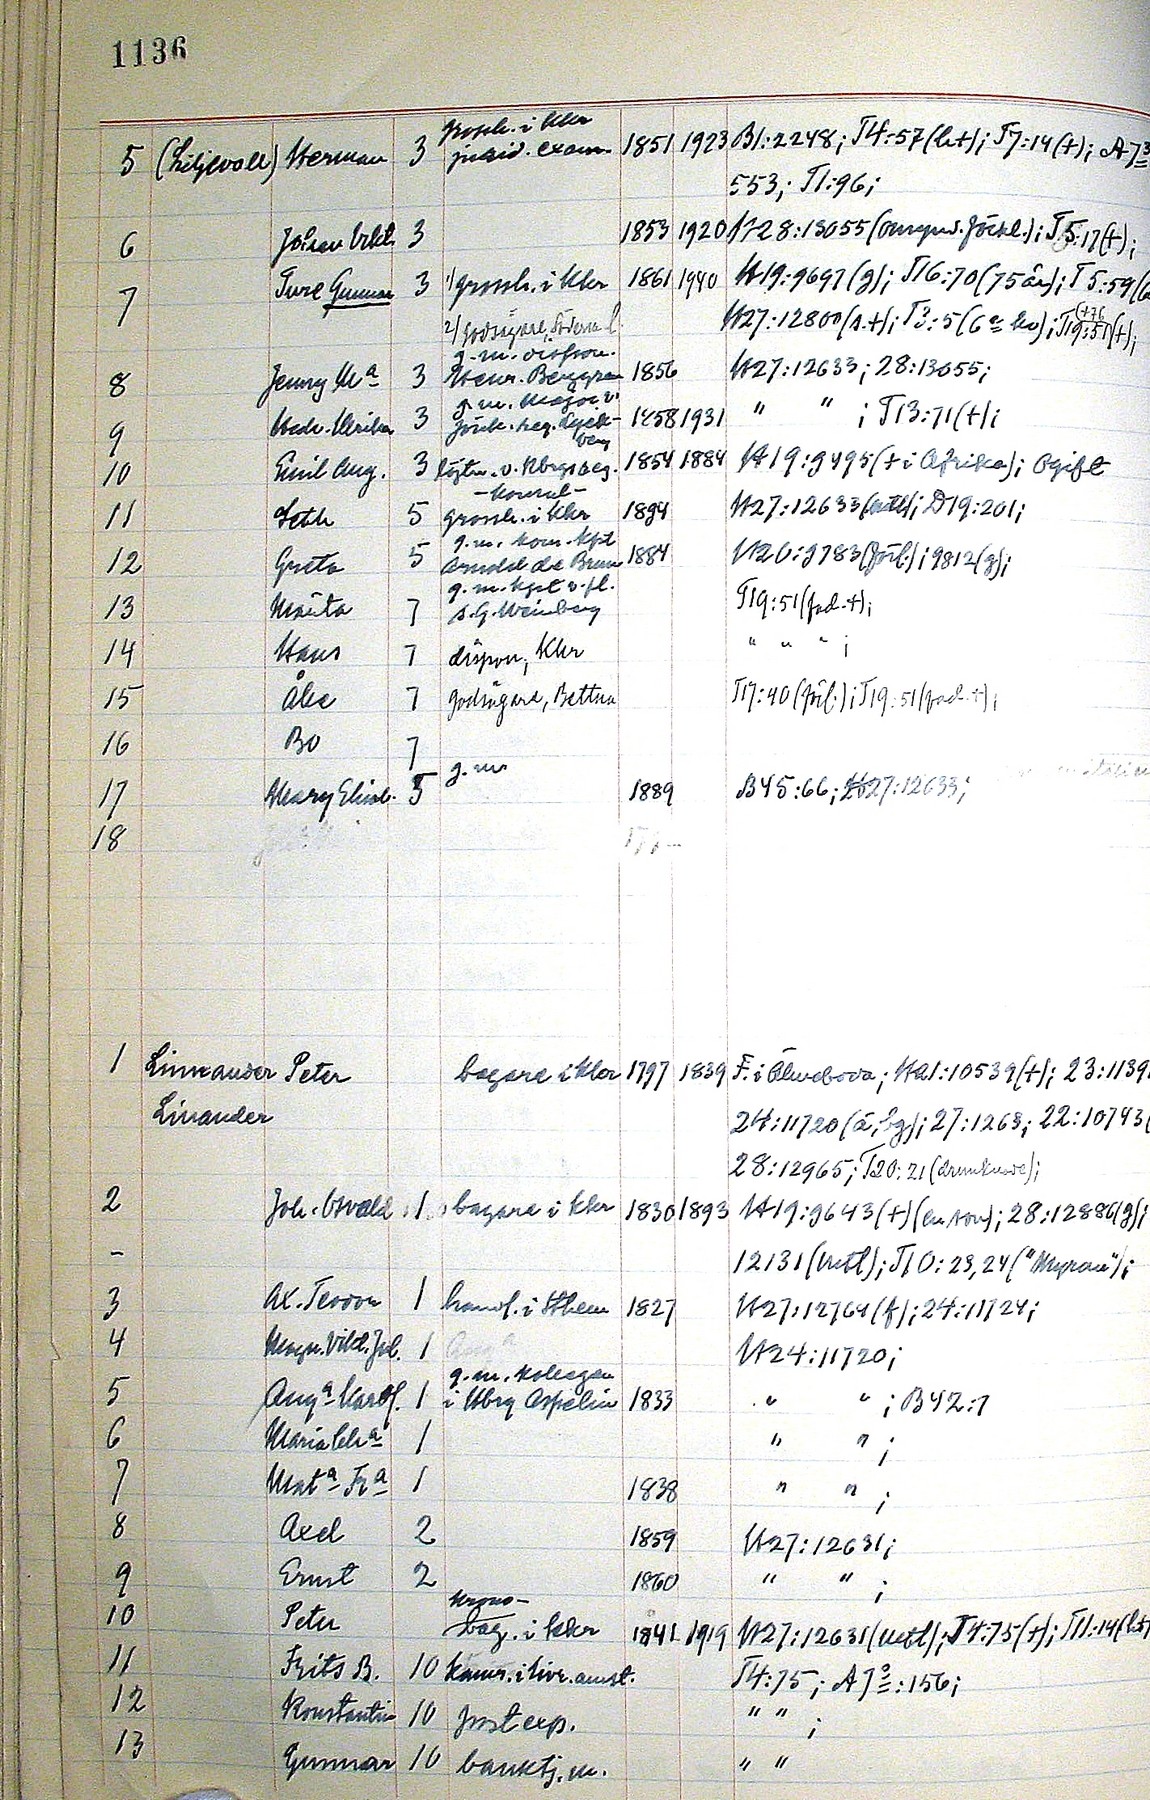 1136
grossh. i Kkr
5 (Liljevall) Herman 3 jurid. exam. 1851 1923 B1:2248; T4:57(b.t); T7:14(t); A7
553; T1:96;
6 Johan Vikt. 3 1853 1920 H28:13055 T5:17(t);
7 Ture Gunnar 3 1/ grossh. i Kkr 1861 1940 H19:9697(g); T16:70(75 år); T5:59
2/ godsägare, H27:12800 T19:51(t);
g.m.
8 Jenny Mª 3 Henr. Berggren 1856 H27:12633; 28:13055;
g.m. Major v.
9 Hedv. Ulrika 3 1858 1931 " " ; T13:71(t);
10 Emil Aug. 3 löjtn. v. Kbgs reg. 1854 1884 H19:9495(t i Afrika); Ogift
-konsul-
11 Seth 5 grossh. i Kkr 1894 H27:12633 D19:201;
g.m. kom. kpt
12 Greta 5 Arnold de Brun 1884 H26:9783(förl.); 9812(g);
g.m. kpt v. fl.
13 Märta 7 S.G. Weinberg T19:51(fad. t);
14 Hans 7 dispon, Kkr " " " ;
15 Åke 7 godsägare, Bettna T17:40(förl.); T19:51(fad. t);
16 Bo 7
g.m.
17 Mary Elisab. 5 1889 B45:66; H27:12633;
18
1 Linnander Peter bagare i Kkr 1797 1839 F. i Älmeboda; H21:10539(t); 23:1139
Linander 24:11720(å, bg); 27:1263; 22:10743(
28:12965; T20:21
2 Joh. Osvald 1 bagare i Kkr 1830 1893 H19:9643(t)(en son); 28:12886(g);
- 12131 T10:23,24("Myran");
3 Ax. Teodor 1 handl. i Sthlm 1827 H27:12764(f); 24:11724;
4 Magn. Vikt. Jul. 1 Augª H24:11720;
g.m. kollegan
5 Augª Karol. 1 i Kbrg Aspelin 1833 " " ; B42:7
6 Maria Chª 1 " " ;
7 Matª Frª 1 1838 " " ;
8 Axel 2 1859 H27:12631;
9 Ernst 2 1860 " " ;
krono-
10 Peter bag. i Kkr 1841 1919 H27:12631 T4:75(t); T11:14(b.t)
11 Frits B. 10 kamr. i livr. anst. T4:75; A7:156;
12 Konstantin 10 postexp. " " ;
13 Gunnar 10 banktj.m. " "